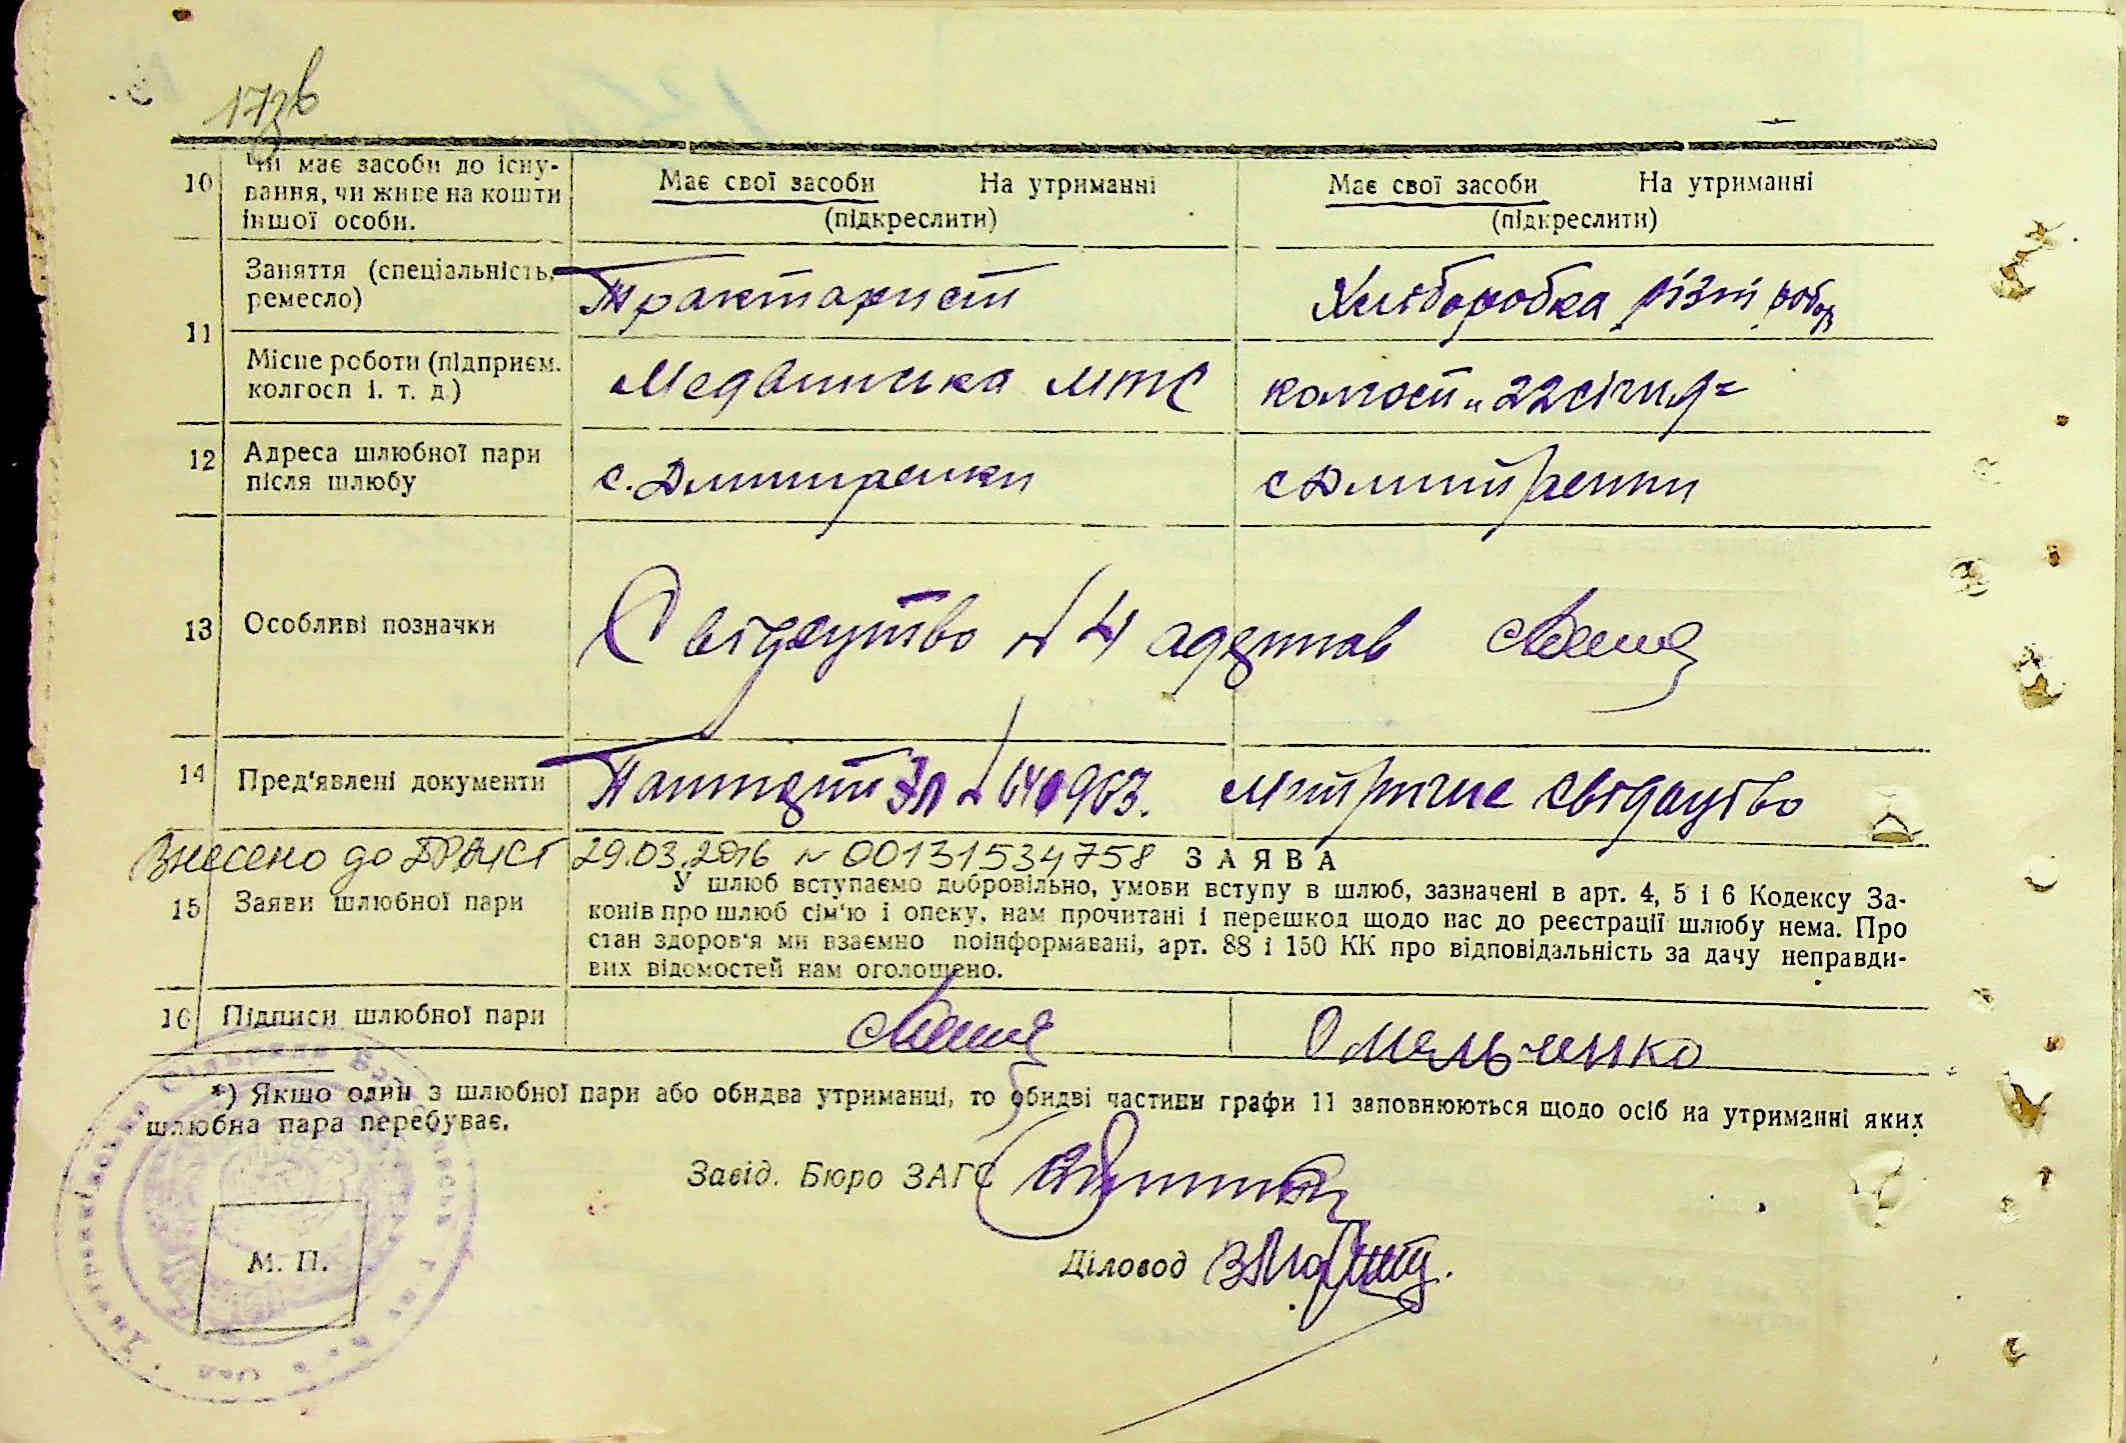 173в
10 Чи має засоби до існу- Має свої засоби На утриманні Має свої засоби На утриманні
вання, чи живе на кошти (підкреслити) (підкреслити)
іншої особи.
11 Заняття (спеціальність, Тракторист Хліборобка різні робот
ремесло)
Місце роботи (підприєм. Медвинська МТС колгосп „22 січня"
колгосп і. т. д.)
12 Адреса шлюбної пари с. Дмитренки с Дмитренки
після шлюбу
13 Особливі позначки Свідоцтво № 4 одержав
14 Пред'явлені документи Паспорт ЗЛ № 640963. Митричне свідоцтво
Внесено до ДРАЦСГ 29.03.2016 № 00131534758 ЗАЯВА
15 Заяви шлюбної пари У шлюб вступаємо добровільно, умови вступу в шлюб, зазначені в арт. 4, 5 і 6 Кодексу За-
конів про шлюб сім'ю і опеку, нам прочитані і перешкод щодо нас до реєстрації шлюбу нема. Про
стан здоров'я ми взаємно поінформавані, арт. 88 і 150 КК про відповідальність за дачу неправди-
вих відомостей нам оголошено.
16 Підписи шлюбної пари Омельченко
*) Якшо один з шлюбної пари або обидва утриманці, то обидві частини графи 11 заповнюються щодо осіб на утриманні яких
шлюбна пара перебуває.
Завід. Бюро ЗАГС
Діловод
М. П.